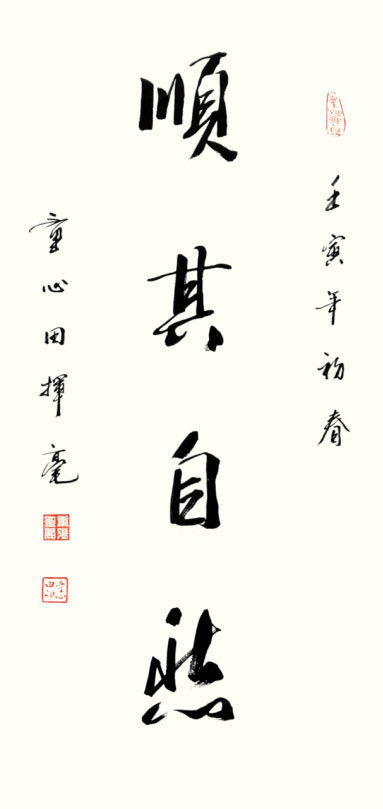 壬寅年初春
順其自然
童心田揮毫